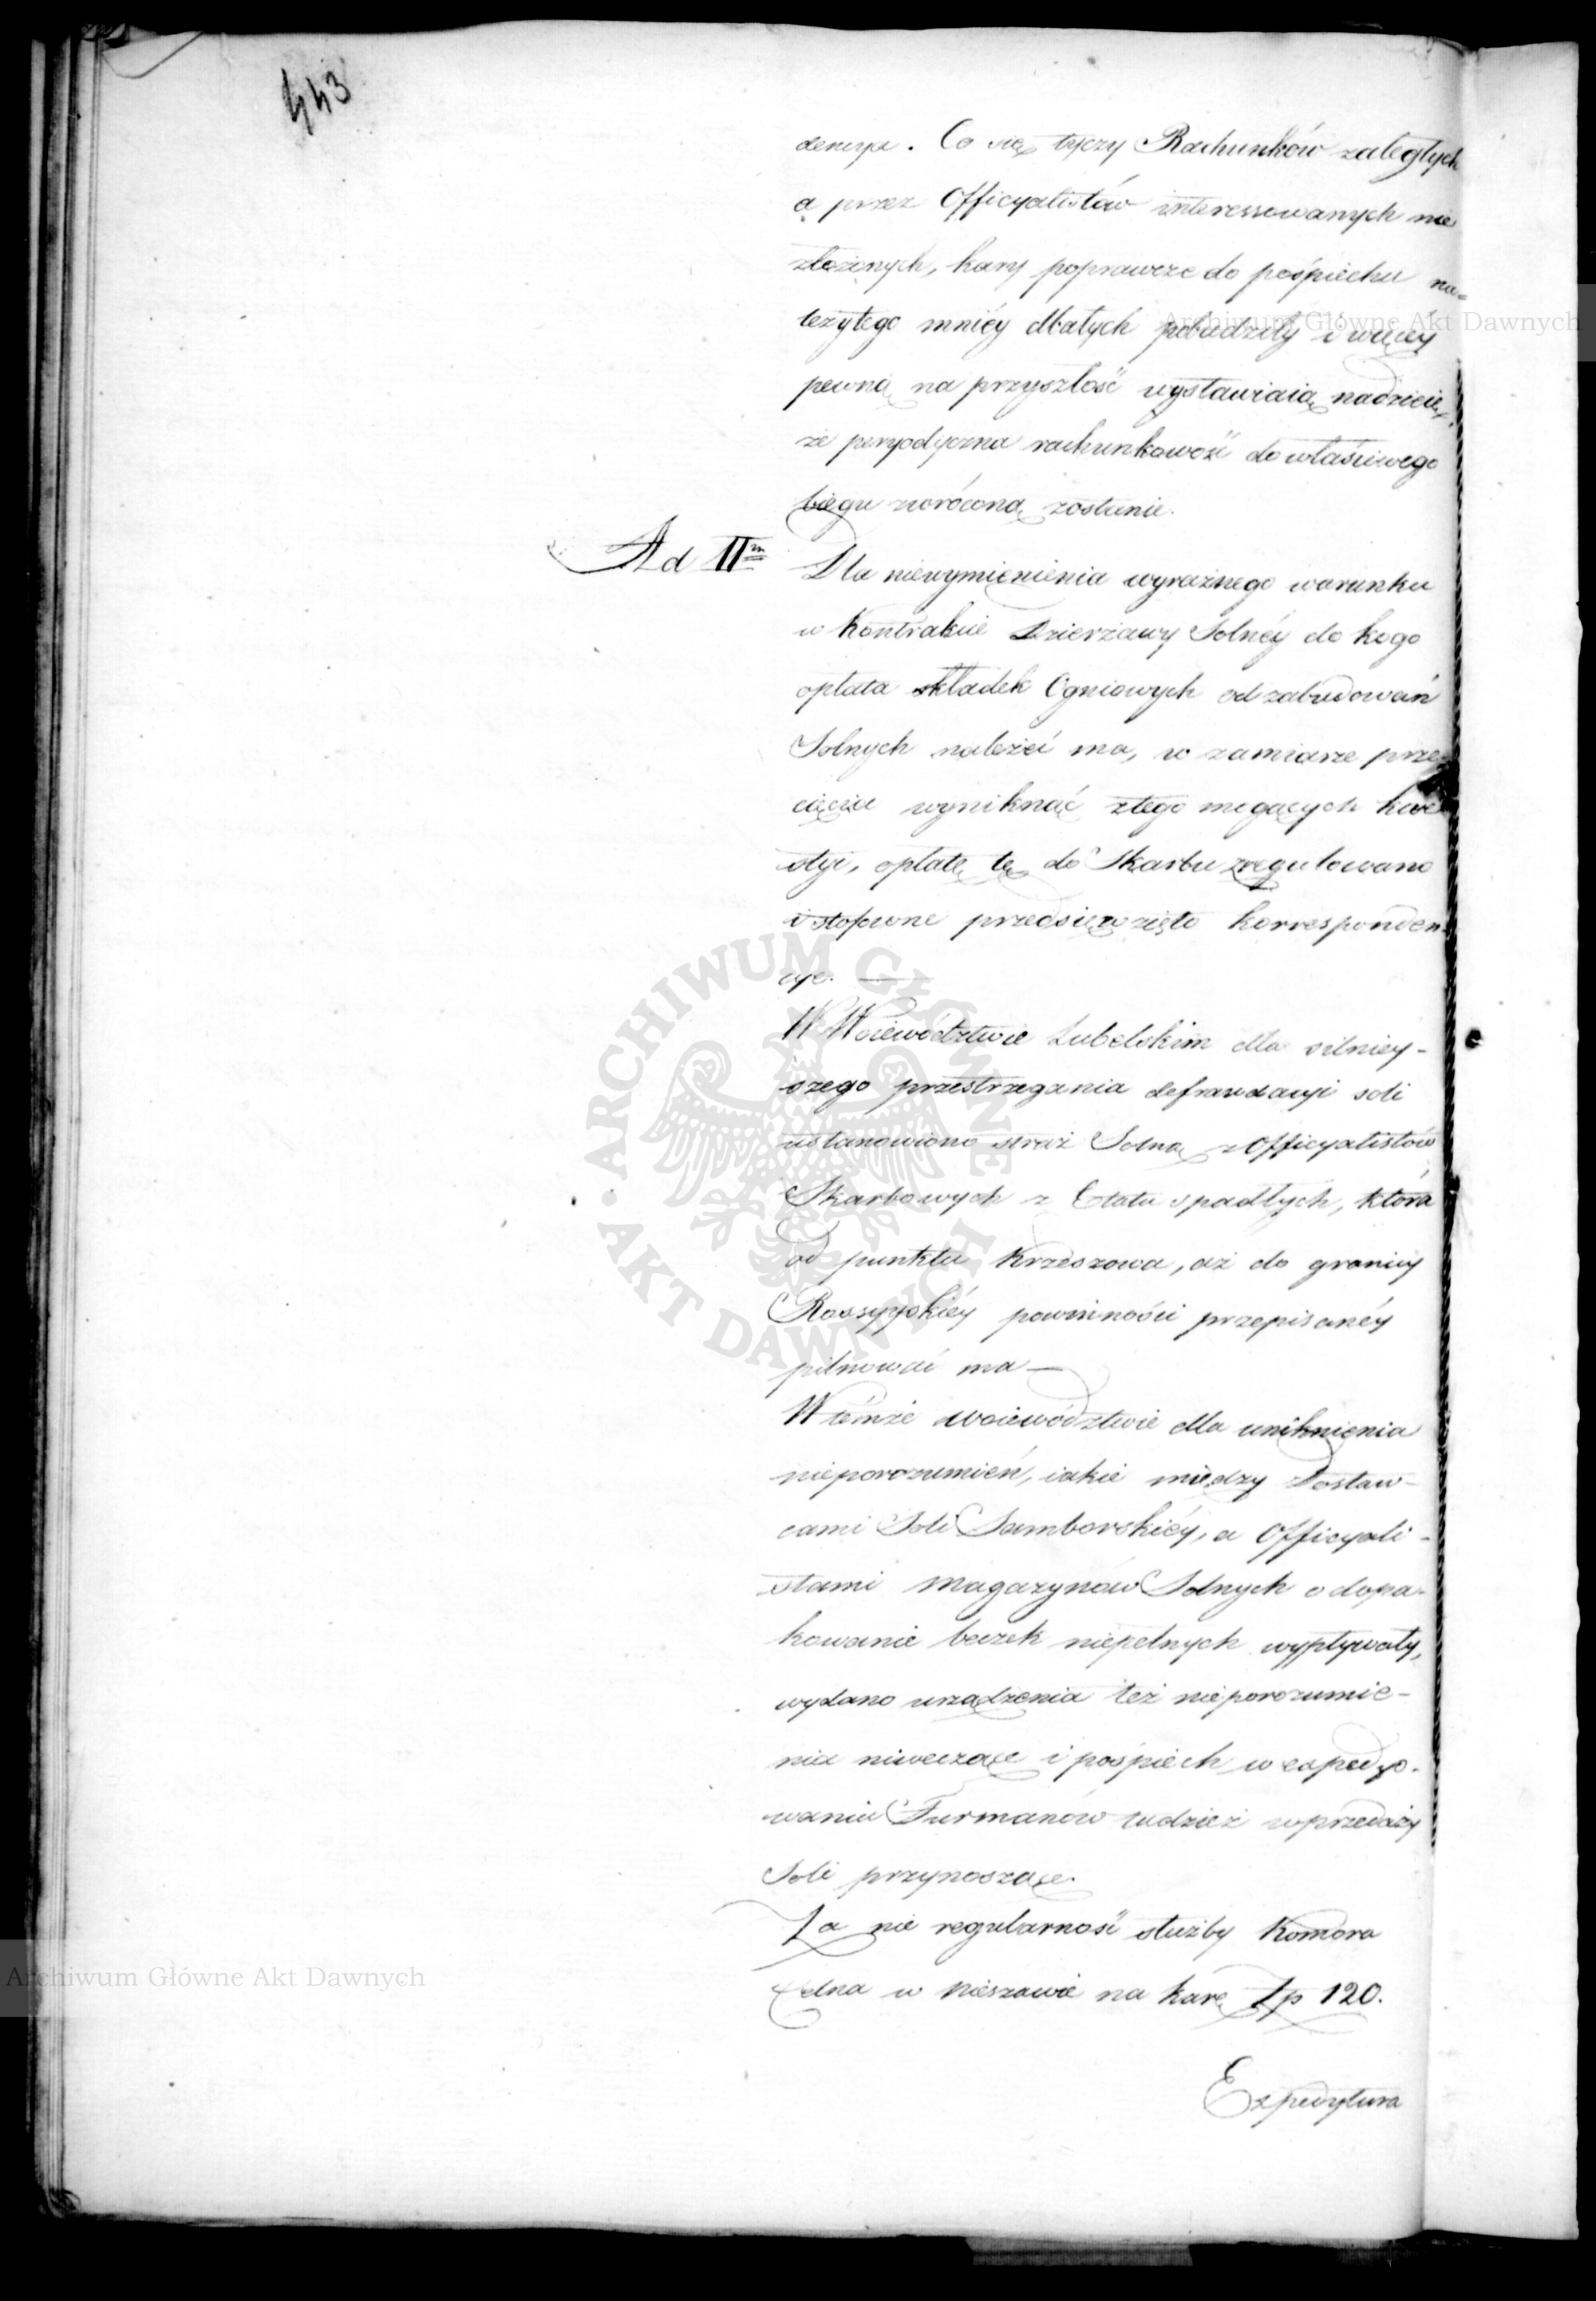 443
dencya. Co się tyczy Rachunków zaległych
a przez Officyalistów interessowanych nie
złożonych, kary poprawcze do pośpiechu na-
leżytego mniéy dbałych pobudziły i więcéy
pewną na przyszłość wystawiaią nadzieię,
że peryodyczna rachunkowość do właściwego
biegu zwróconą zostanie.
Ad IIm
Dla niewymienienia wyraźnego warunku
w Kontrakcie Dzierżawy Solnéy do kogo
opłata składek Ogniowych od zabudowań
Solnych należéć ma, w zamiarze prze-
cięcia wyniknąć ztego mogących kwe-
styi, opłatę tę do Skarbu zregulowano
i stosowne przedsięwzięto korresponden-
cye.
W Woiewództwie Lubelskim dla silniey-
szego przestrzegania defraudacyi soli
ustanowiono straż Solną z Officyalistów
Skarbowych z Etatu spadłych, która
od punktu Krzeszowa, aż do granicy
Rossyyskiéy powinności przepisanéy
pilnować ma —
W témże woiewództwie dla uniknienia
nieporozumień, iakie między Dostaw-
cami Soli Samborskiéy, a Officyali-
stami Magazynów Solnych o dopa-
kowanie beczek niepełnych wypływały,
wydano urządzenia też nieporozumie-
nia niweczące i pośpiech w expedyo-
waniu Furmanów tudzież w przedaży
Soli przynoszące.
Za nie regularność służby Komora
Celna w Nieszawie na karę Zp 120.
Expedytura
Archiwum Główne Akt Dawnych
Archiwum Główne Akt Dawnych
ARCHIWUM GŁÓWNE AKT DAWNYCH